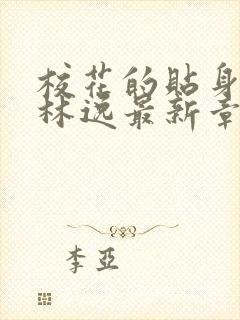 校花的貼身
林逸最新章
李亞